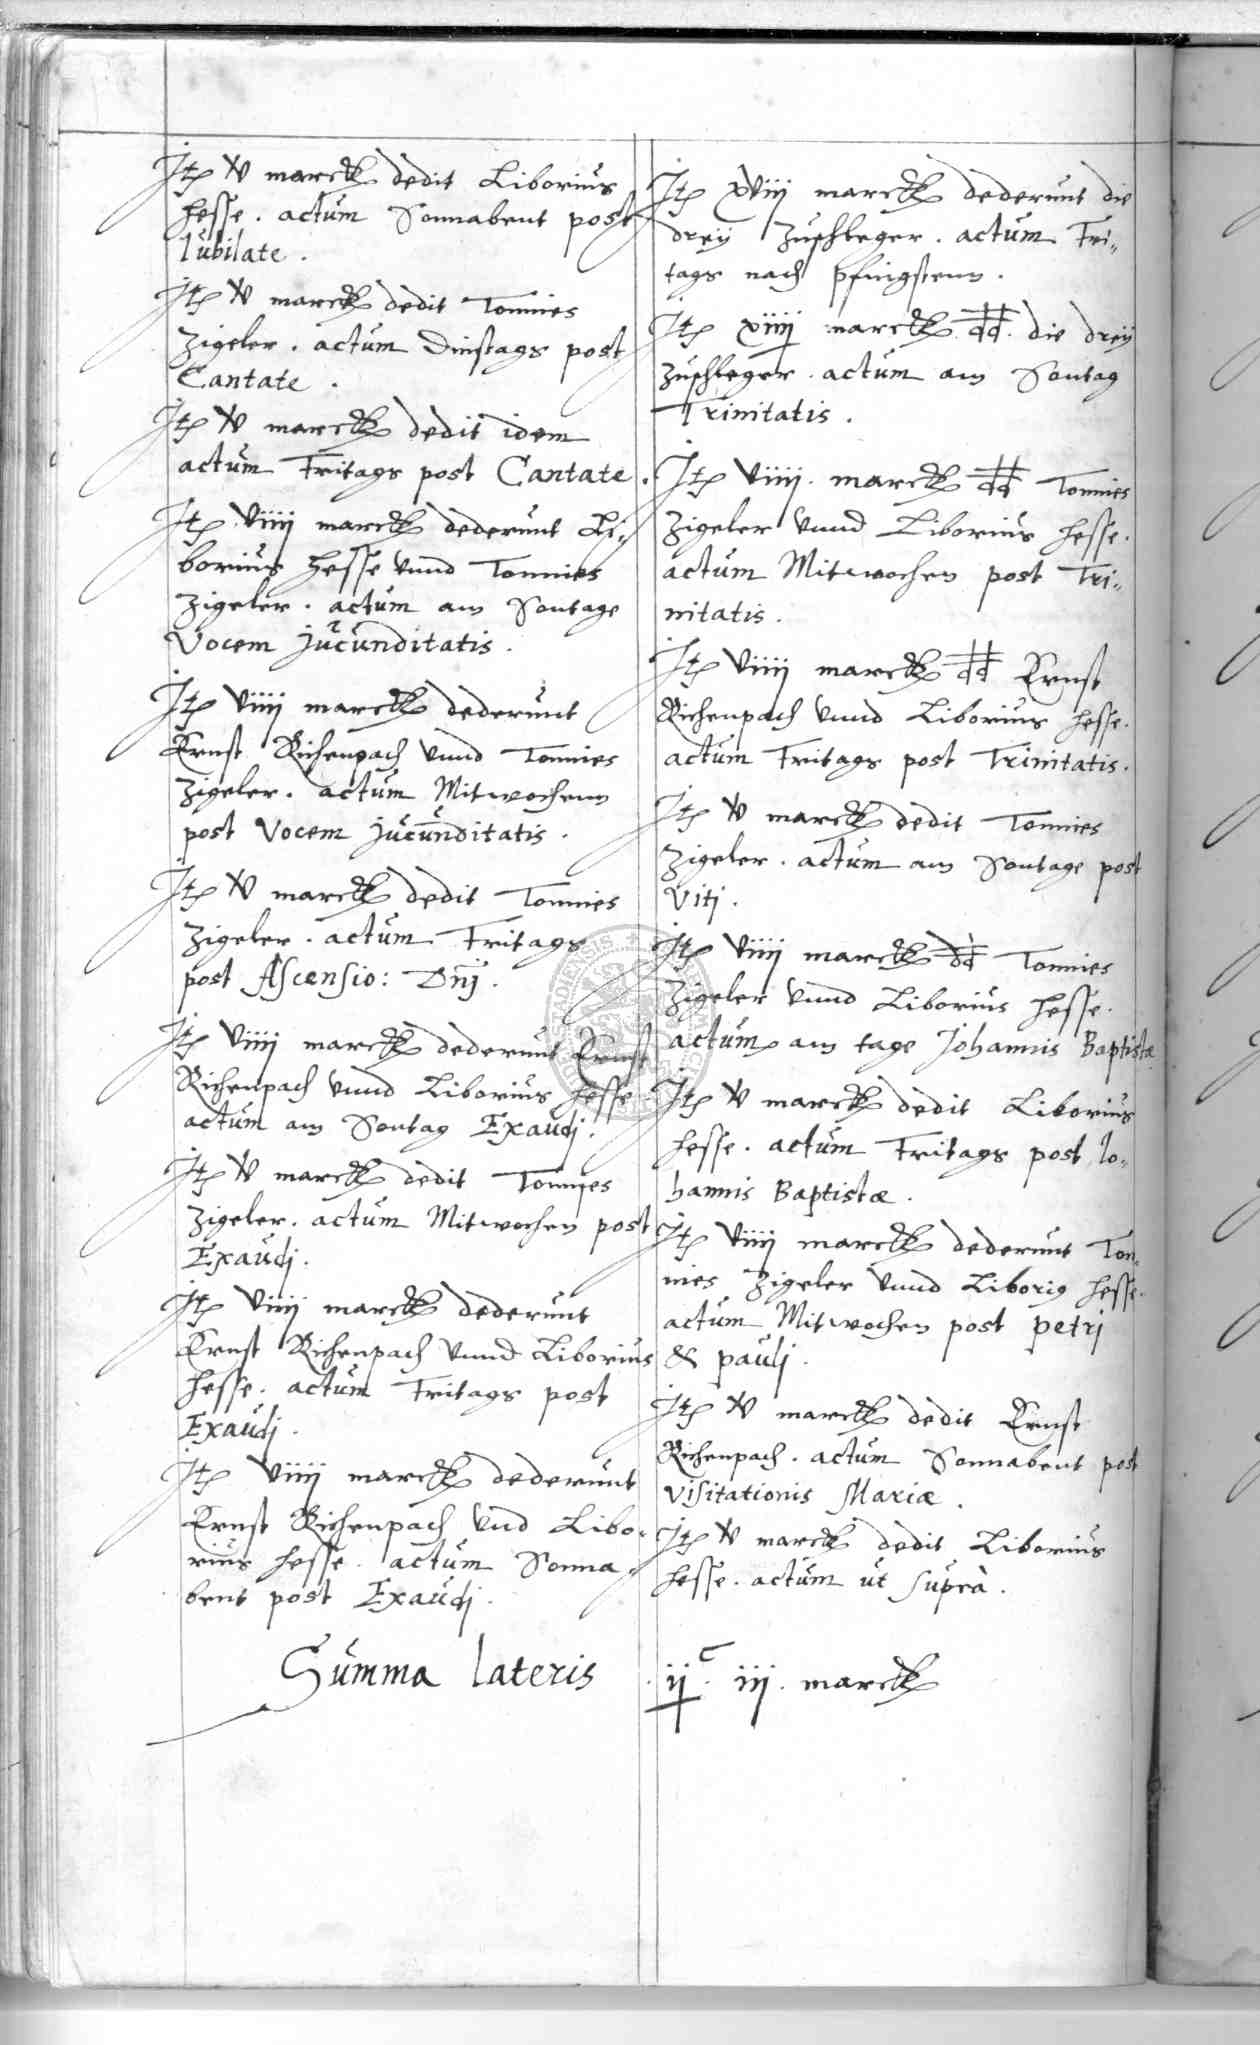 Itꝫ v marck dedit Liborius
Hesse . actum Sonnabent post
Iubilate .
Itꝫ v marck dedit Tonnies
Zigeler . actum Dinstags post
Cantate .
Itꝫ v marck dedit idem
actum Fritags post Cantate .
Itꝫ viiij marck dederunt Li-
borius Hesse vnnd Tonnies
Zigeler . actum am Sontage
Vocem jucunditatis .
Itꝫ viiij marck dederunt
Ernst Richenpach vnnd Tonnies
Zigeler . actum Mitwochenn
post Vocem jucunditatis .
Itꝫ v marck dedit Tonnies
Zigeler . actum Fritags
post Ascensio: Dnj .
Itꝫ viiij marck dederunt Ernst
Richenpach vnnd Liborius Hesse .
actum am Sontag Exaudj .
Itꝫ v marck dedit Tonnies
Zigeler . actum Mitwochen post
Exaudj .
Itꝫ viiij marck dederunt
Ernst Richenpach vnnd Liborius
Hesse . actum Fritags post
Exaudj .
Itꝫ viiij marck dederunt
Ernst Richenpach vnd Libo-
rius Hesse . actum Sonna-
bent post Exaudj .
Itꝫ xviiij marck dederunt die
dreij Zuschleger . actum Fri-
tags nach Pfingstenn .
Itꝫ xiiij marck dd . die dreij
Zuschleger . actum am Sontag
Trinitatis .
Itꝫ viiij . marck dd Tonnies
Zigeler vnnd Liborius Hesse .
actum Mitwochen post Tri-
nitatis .
Itꝫ viiij marck dd Ernst
Richenpach vnnd Liborius Hesse .
actum Fritags post Trinitatis .
Itꝫ v marck dedit Tonnies
Zigeler . actum am Sontage post
Vitj .
Itꝫ viiij marck dd Tonnies
Zigeler vnnd Liborius Hesse .
actum am tage Johannis Baptistæ
Itꝫ v marck dedit Liborius
Hesse . actum Fritags post Io-
hannis Baptistæ .
Itꝫ viiij marck dederunt Ton-
nies Zigeler vnnd Liborig Hesse .
actum Mitwochen post Petrj
& Paulj .
Itꝫ v marck dedit Ernst
Richenpach . actum Sonnabent post
Visitationis Mariæ .
Itꝫ v marck dedit Liborius
Hesse . actum ut suprà .
Summa lateris . ijᶜ . iij . marck